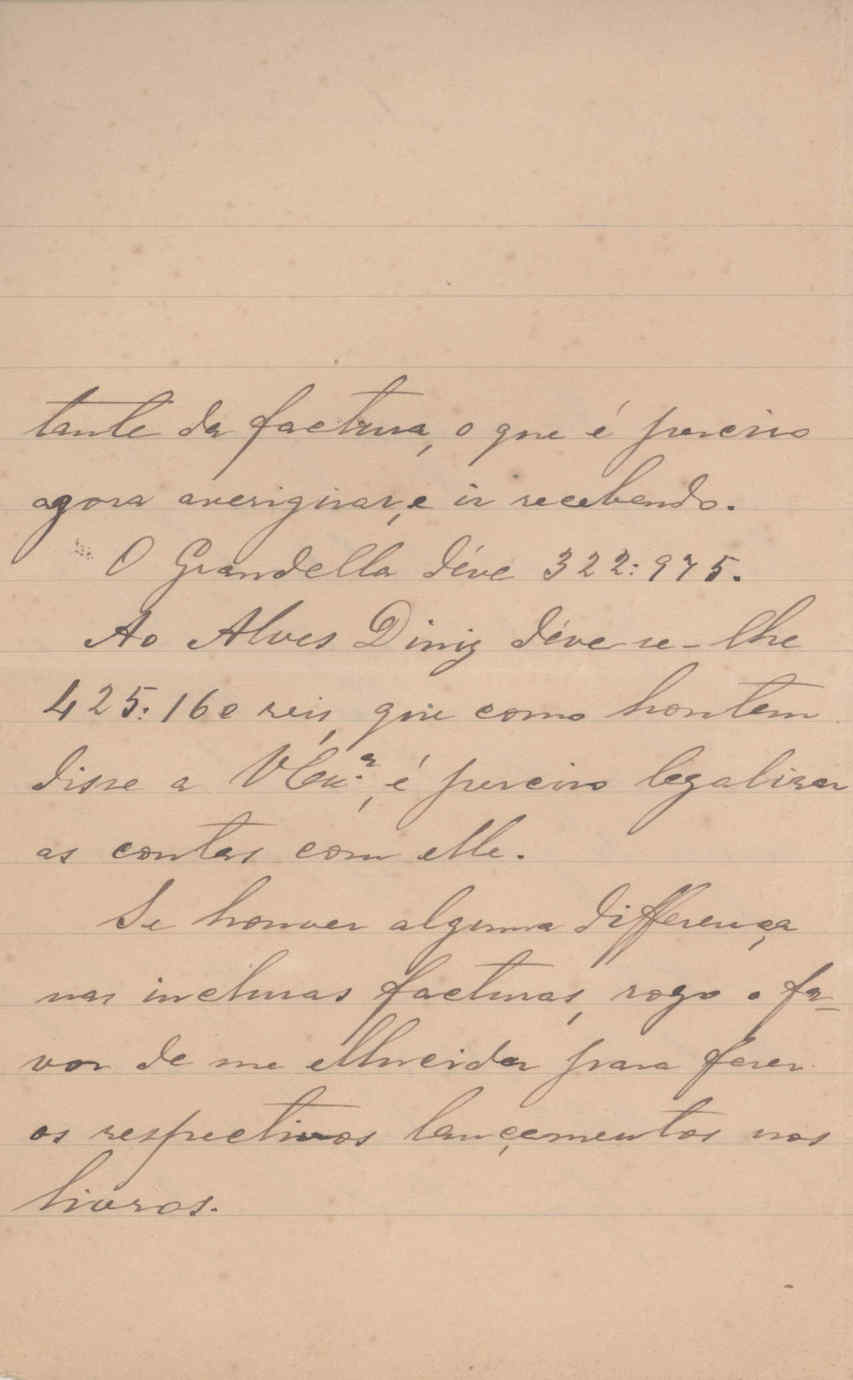 tante da factura, o que é preciso
agora averiguar, e ir recebendo.
O Grandella déve 322:975.
Ao Alves Diniz déve-se-lhe
425:160 reis, que como hontem
disse a VExª, é preciso legalizar
as contas com elle.
Se houver alguma differença
nas inclusas facturas, rogo o fa-
vor de me para fazer
os respectivos lançamentos nos
livros.